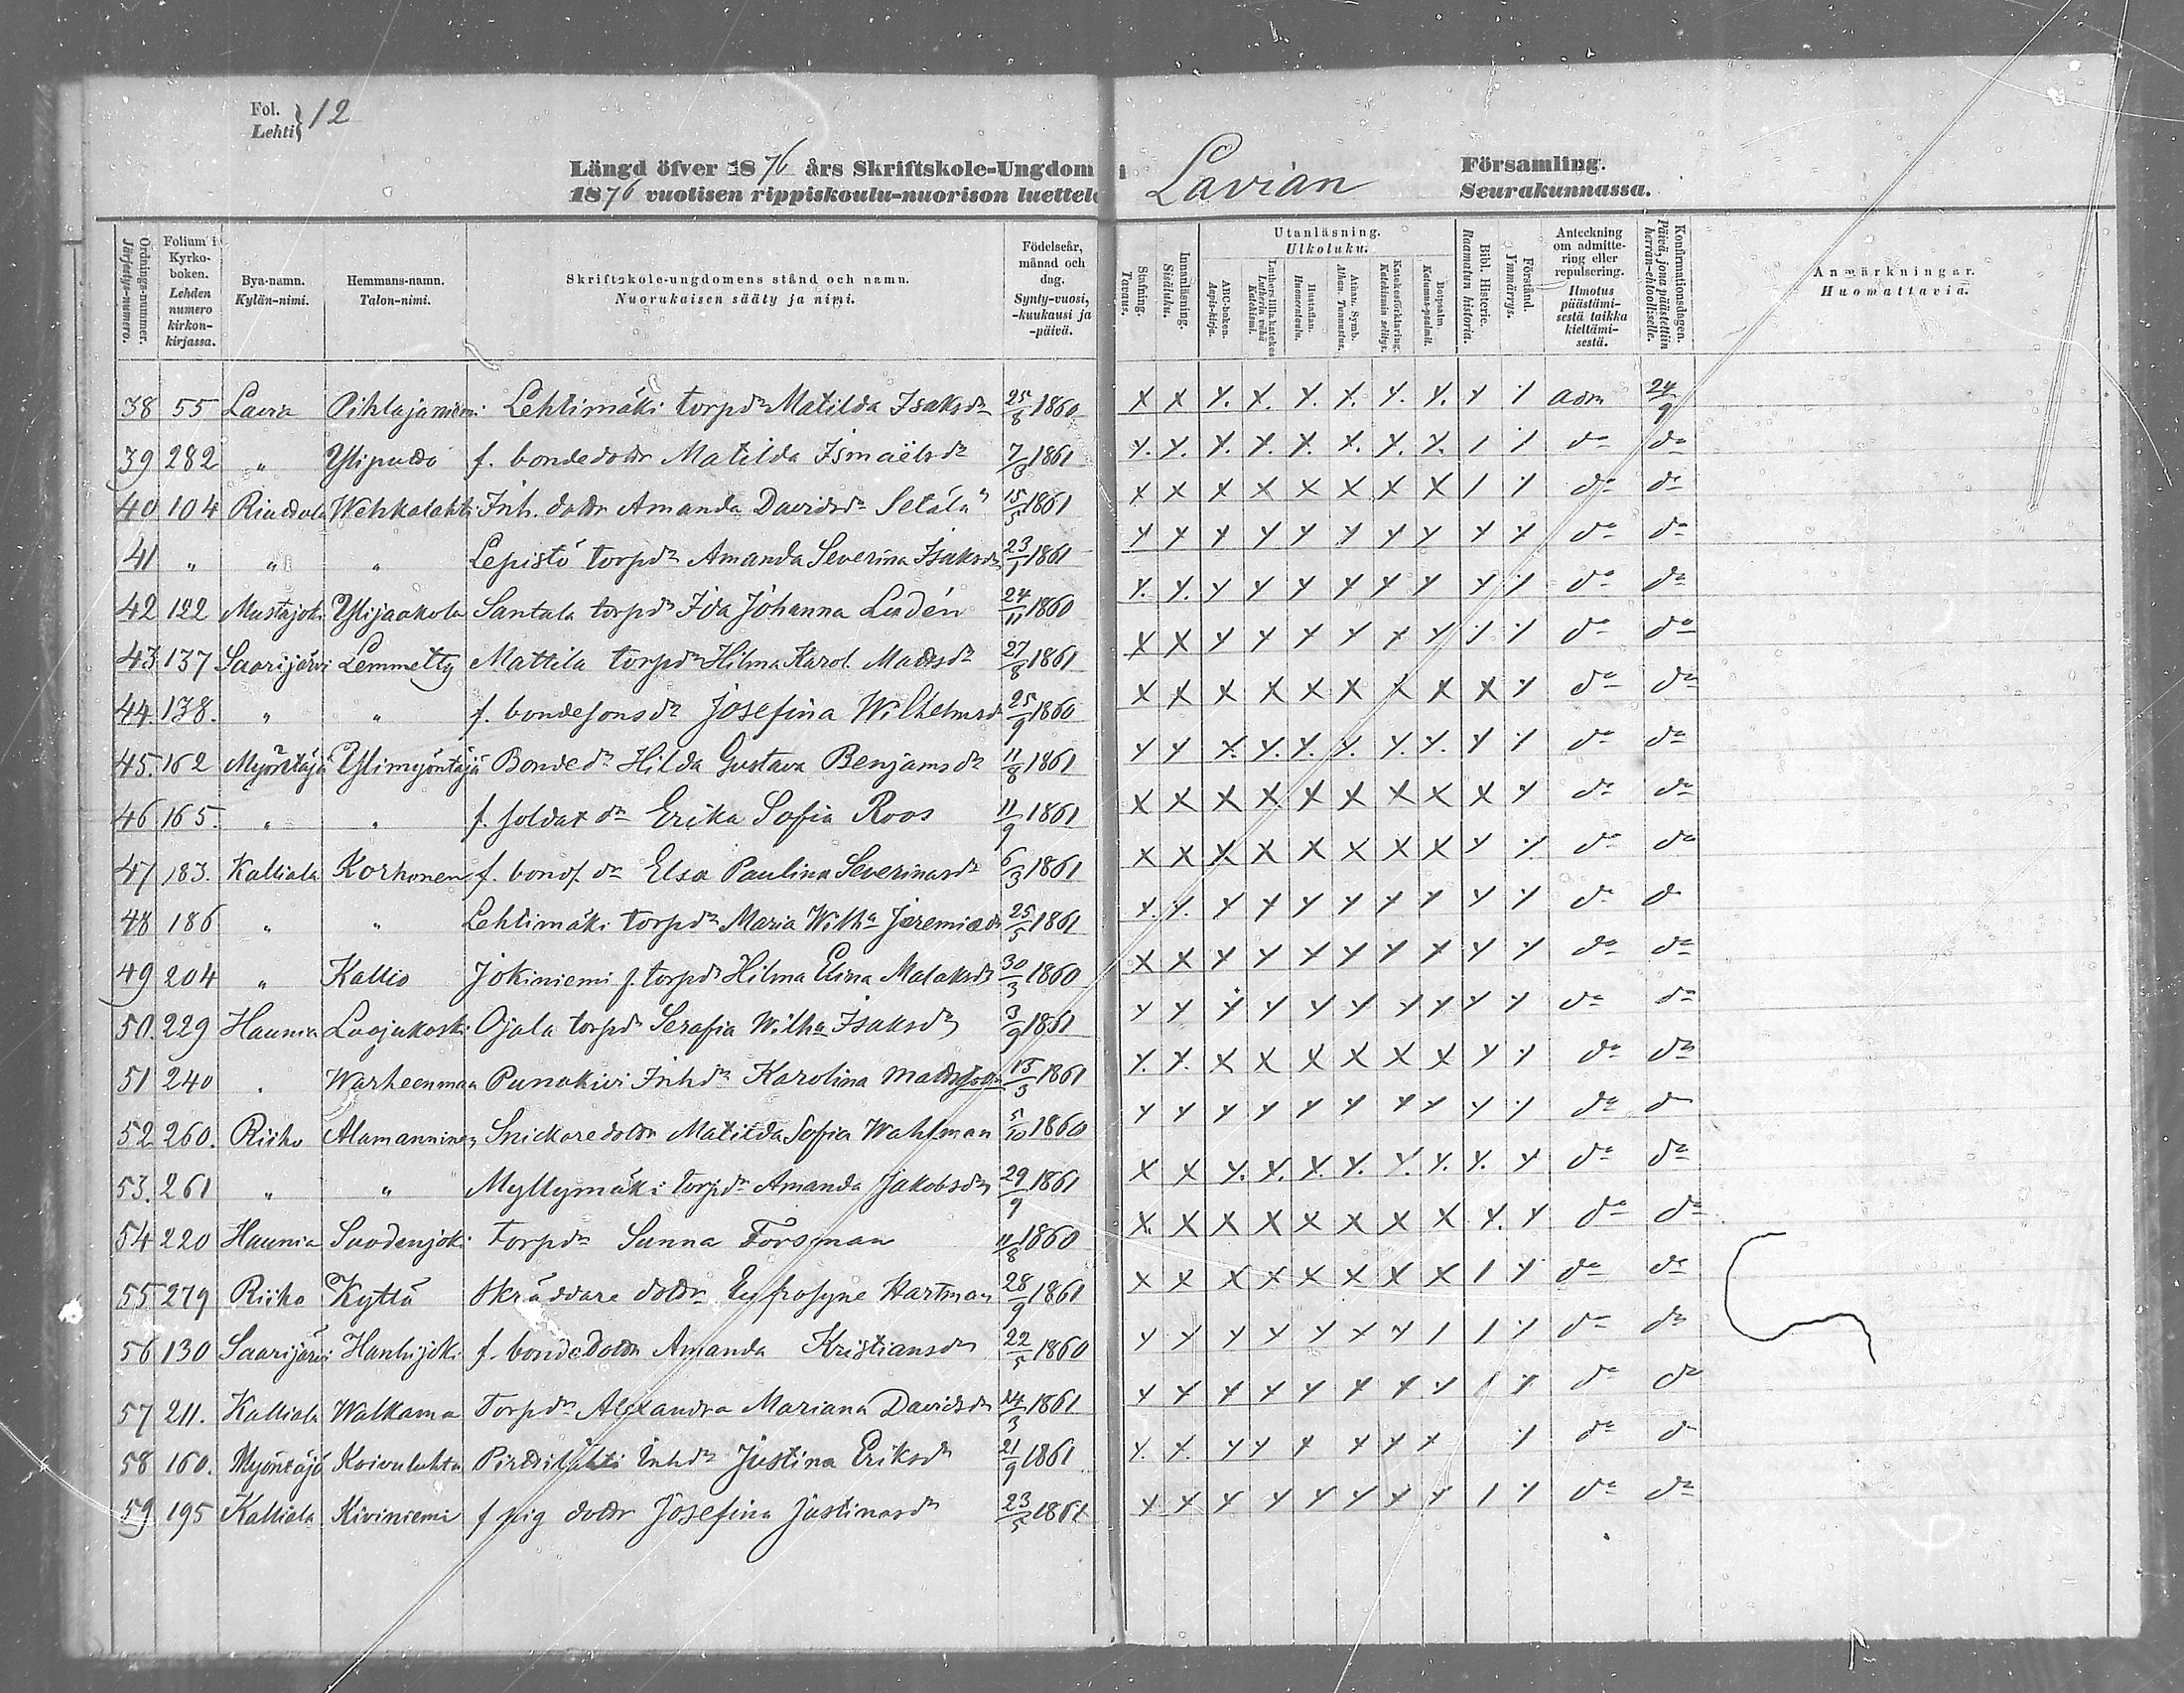 Fol. Lehti } 12
Längd öfver 1876 års Skriftskole-Ungdom i Lavian Församling.
1876 vuotisen rippiskoulu-nuorison luettelo Seurakunnassa.
Ordnings-nummer. Järjesty-numero.
Folium i Kyrko-boken. Lehden numero kirkon-kirjassa.
Bya-namn. Kylän-nimi.
Hemmans-namn. Talon-nimi.
Skriftskole-ungdomens stånd och namn. Nuorukaisen sääty ja nimi.
Födelseår, månad och dag. Synty-vuosi, -kuukausi ja -päivä.
Stafning. Tavaus.
Innanläsning. Sisäluku.
Utanläsning. Ulkoluku.
ABC-boken. Aapis-kirja.
Luthers lilla katekes Lutherin vähä Katekismi.
Hustaflan. Huoneentaulu.
Athan. Symb. Athan. Tunnustus.
Katekesförklaring. Katekismin selitys.
Botpsalm. Katumus-psalmit.
Bibl. Historie. Raamatun historia.
Förstånd. Ymmärrys.
Anteckning om admittering eller repulsering. Ilmotus päästämisestä taikka kieltämisestä.
Konfirmationsdagen. Päivä, jona päästettiin herran-ehtoolliselle.
Anmärkningar. Huomattavia.
38 55 Lavia Pihlajaniemi Lehtimäki torpdr Matilda Isaksdr 25/8 1860 x x x. x. x. x. x. x. x 1 adm 24/9
39 282 " Yliputto f. bondedottr Matilda Ismaelsdr 7/3 1861 x. x. x. x. x. x. x. x. 1 1 do do
40 104 Riuttula Wehkalahti Inh. dottr Amanda Davidsdr Setälä 15/5 1861 x x x x x x x x 1 1 do do
41 " " " Lepistö torpdr Amanda Severina Isaksdr 23/1 1861 x x x x x x x x x x do do
42 122 Mustajoki Ylijaakola Santala torpdr Ida Johanna Lindén 24/11 1860 x. x. x x x x x x x x do do
43. 137 Saarijärvi Lemmetty Mattila torpdr Hilma Karol. Mattsdr 27/8 1861 x x x x x x x x 1 1 do do
44. 138. " " f. bondesonsdr Josefina Wilhelmsd 25/9 1860 x x x x x x x x x x do do
45. 162 Myöntäjä Ylimyöntäjä Bondedr Hilda Gustava Benjamsdr 11/8 1861 x x x. x. x. x. x. x. x 1 do do
46 165. " " f. soldat dr Erika Sofia Roos 11/9 1861 x x x x x x x x x x do do
47 183. Kalliala Korhonen f. bondf. dr Elsa Paulina Severinasdr 6/3 1861 x x x x x x x x x x do do
48 186 " " Lehtimäki torpdr Maria Wilha Jeremiædr 25/5 1861 x. x. x x x x x x x x do d
49 204 " Kallio Jokiniemi f. torpdr Hilma Elina Malaksdr 30/3 1860 x x x x x x x x x x do do
50. 229 Haunia Laajakoski Ojala torpdr Serafia Wilha Isaksdr 3/9 1861 x x x x x x x x x x do do
51 240 " Warheenmaa Punakivi Inhdr Karolina 15/3 1861 x. x. x x x x x x x x do do
52 260. Riiho Alamanninen Snickaredottr Matilda Sofia Wahlman 5/10 1860 x x x x x x x x x 1 do d
53. 261 " " Myllymäki torpdr Amanda Jakobsdr 29/9 1861 x x x. x. x. x. x. x. x. x do do
54 220 Haunia Suodenjoki Torpdr Sanna Forsman 11/8 1860 x. x x x x x x x x. x do do
55 279 Riiho Kyttä Skräddare dottr Eufrosyne Hartman 28/9 1861 x x x x x x x x 1 x do do
56 130 Saarijärvi Hanhijoki f. bondedottr Amanda Kristiansdr 22/5 1860 x x x x x x x 1 1 x do do
57 211. Kalliala Walkama Torpdr Alexandra Mariana Davidsdr 14/3 1861 x x x x x x x x 1 x do do
58 160. Myöntäjä Koivuluhta Pirttilahti Inhdr Justina Eriksdr 21/9 1861 x. x. x x x x x x 1 do d
59 195 Kalliala Kiviniemi f pig dottr Josefina Justinasdr 23/5 1861 x x x x x x x x 1 x do do